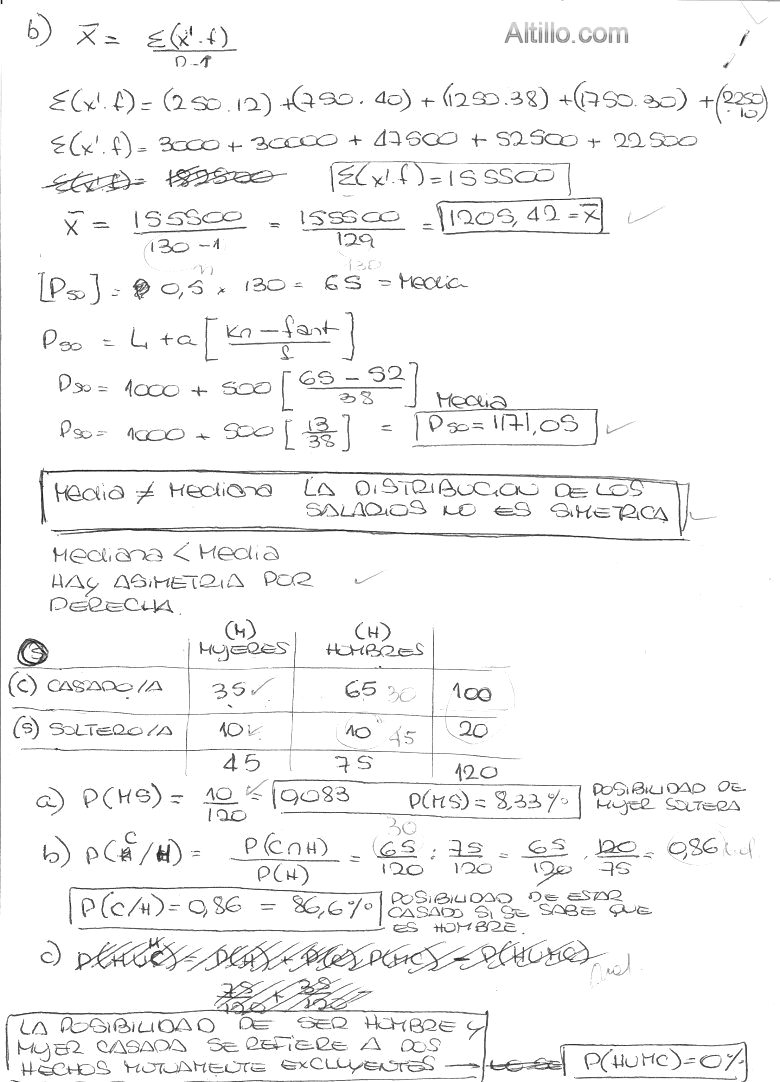 b) X̄ = Σ(x'.f) / n-1
Altillo.com
Σ(x'.f) = (250.12) + (750.40) + (1250.38) + (1750.30) + (2250.10)
Σ(x'.f) = 3000 + 30000 + 47500 + 52500 + 22500
Σ(x'.f) = 182500 Σ(x'.f) = 155500
X̄ = 155500 / 130-1 = 155500 / 129 = 1205,42 = X̄
130
[P50] = 0,5 x 130 = 65 = Media
P50 = Li + a [Kn - fant / f]
P50 = 1000 + 500 [65 - 52 / 38]
Media
P50 = 1000 + 500 [13 / 38] = P50 = 1171,05
Media ≠ Mediana LA DISTRIBUCION DE LOS
SALARIOS NO ES SIMETRICA
Mediana < Media
HAY ASIMETRIA POR
DERECHA.
(M) (H)
MUJERES HOMBRES
(C) CASADO/A 35 65 30 100
(S) SOLTERO/A 10 10 45 20
45 75 120
a) P(MS) = 10/120 = 0,083 P(MS) = 8,33% POSIBILIDAD DE
MUJER SOLTERA
30
b) P(C/H) = P(C∩H) / P(H) = 65/120 : 75/120 = 65/120 . 120/75 = 0,86
P(C/H) = 0,86 = 86,6% POSIBILIDAD DE ESTAR
CASADO SI SE SABE QUE
ES HOMBRE.
c)
75/120 + 35/120
LA POSIBILIDAD DE SER HOMBRE y
MUJER CASADA SE REFIERE A DOS
HECHOS MUTUAMENTE EXCLUYENTES → P(HUMC) = 0%